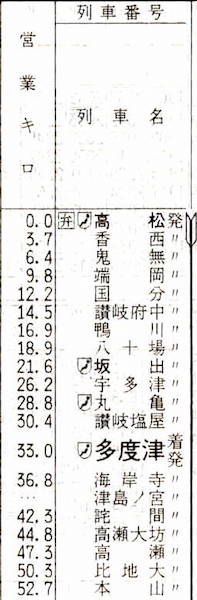 列車番号
営業キロ
列車名
0.0 弁 高松 発
3.7 香西 〃
6.4 鬼無 〃
9.8 端岡 〃
12.2 国分 〃
14.5 讃岐府中 〃
16.9 鴨川 〃
18.9 八十場 〃
21.6 坂出 〃
26.2 宇多津 〃
28.8 丸亀 〃
30.4 讃岐塩屋 〃
33.0 多度津 着発
36.8 海岸寺 〃
… 津島ノ宮 〃
42.3 詫間 〃
44.8 高瀬大坊 〃
47.3 高瀬 〃
50.3 比地大 〃
52.7 本山 〃